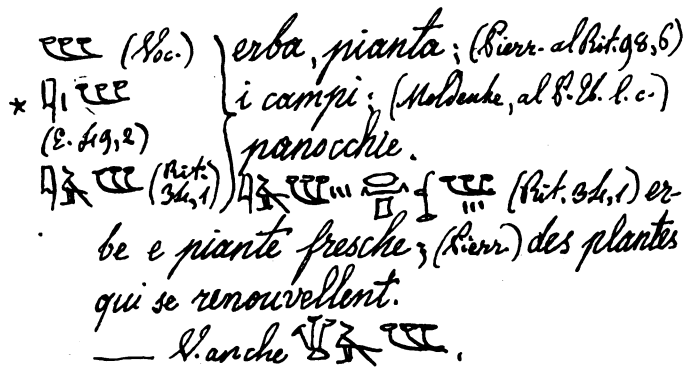 (Voc.) erba, pianta; (Pierr. al Rit. 98,6)
* i campi; (Moldenke, al P. Eb. l. c.)
(E. 49,2) panocchie.
(Rit. 34,1) (Rit. 34,1) er-
be e piante fresche; (Pierr.) des plantes
qui se renouvellent.
— V. anche .